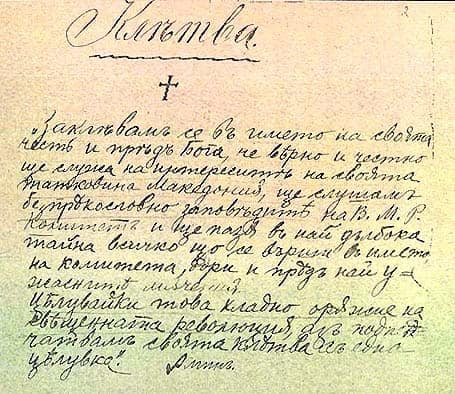 2
Клѣтва.
„Заклѣвамъ се въ името на своята
честь и прѣдъ Бога, че вѣрно и честно
ще служа на интереситѣ на своята
татковина Македония, ще слушамъ
безпрѣкословно заповѣдитѣ на В. М. Р.
Комитетъ и ще пазя въ най дълбока
тайна всичко що се върши въ името
на комитета, дори и прѣдъ най у-
жаснитѣ мѫчения.
Цѣлувайки това хладно орѫжие на
свѣщенната революция, азъ подпе-
чатвамъ своята клѣтва съ една
цѣлувка“. Аминъ.